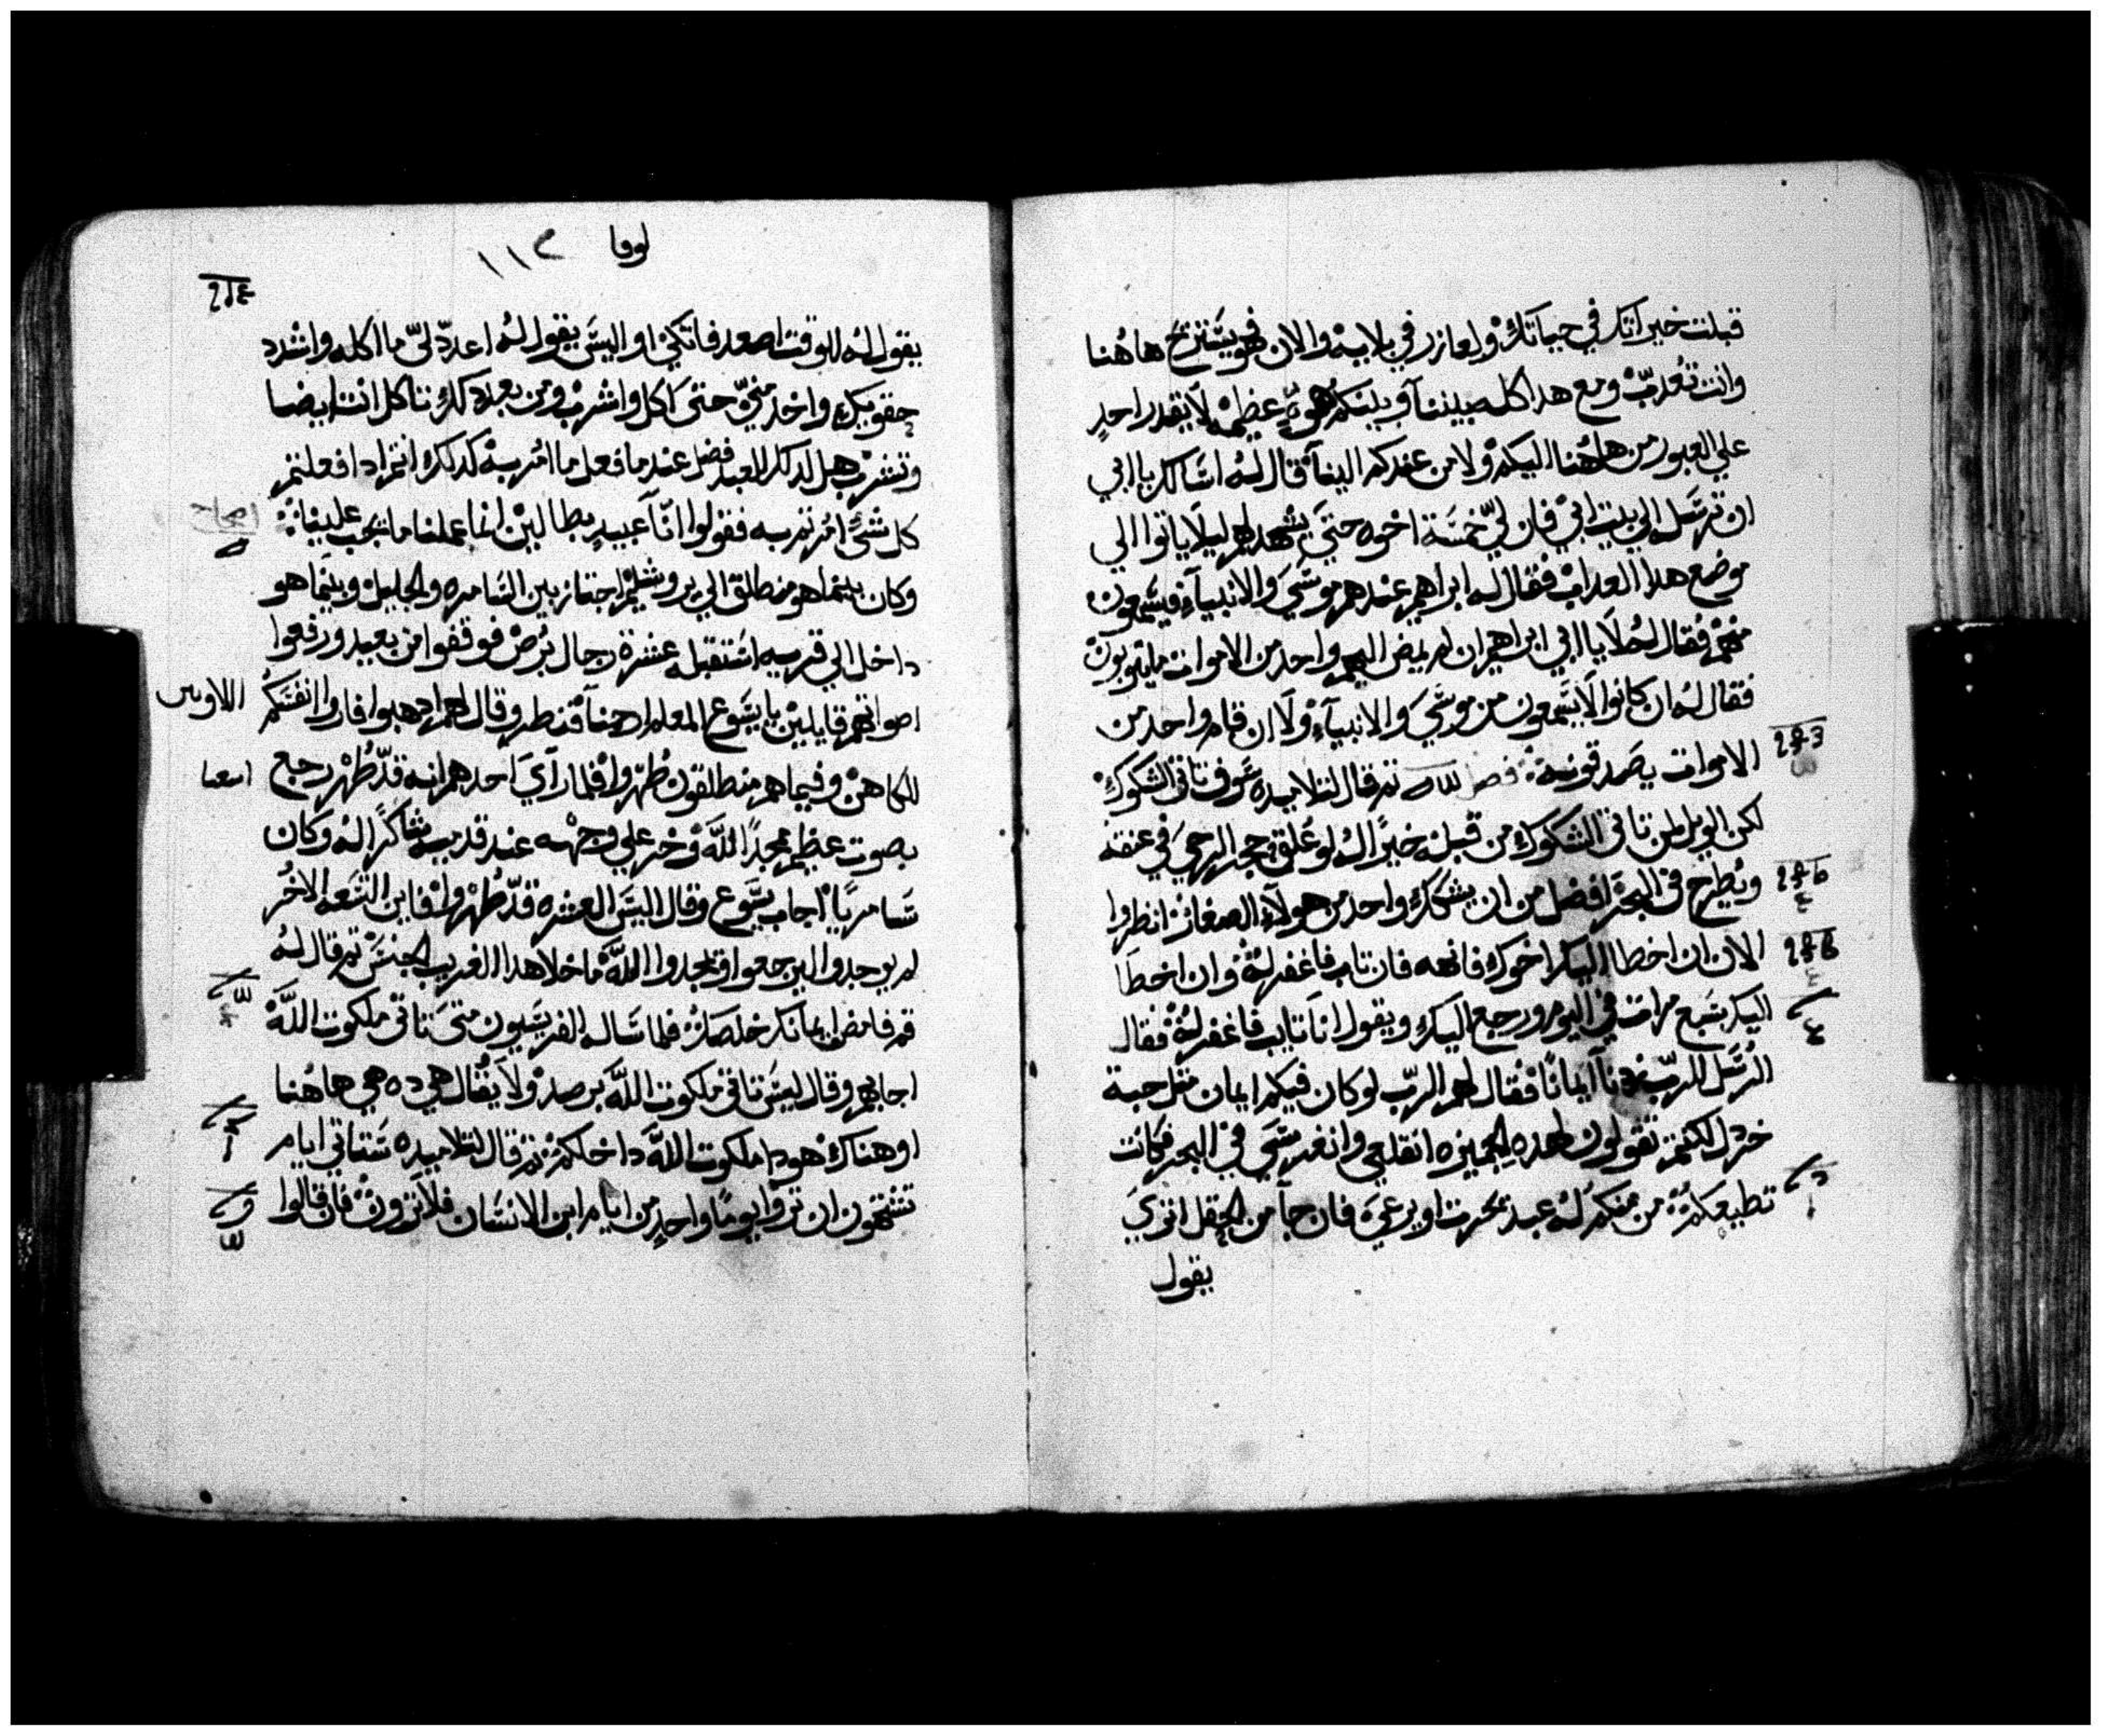 قبلت خيراتك في حياتك ولعازر في بلايه والان فهو يتنيح هاهنا
وانت تعدب ومع هدا كله بيننا وبينكم هوه عظيمه لا يقدر احد
علي العبور من هاهنا اليكم ولا من عندكم الينا قال له اسالك يا ابي
ان ترسل الي بيت ابي فان لي خمسة اخوه حتي يشهد لهم ليلا ياتوا الي
موضع هدا العداب فقال له ابراهيم عندهم موسي والانبيآء فيسمعون
منهم فقال له لا يا ابي ابراهيم ان لم يمض اليهم واحد من الاموات ما يتوبون
فقال له ان كانوا لا يسمعون من موسي والانبيآء ولا ان قام واحد من
الاموات يصدقونه فصل ثم قال لتلاميده سوف تاتي الشكوك
لكن الويل لمن تاتي الشكوك من قبله خيرًا له لو عُلق حجر الرحي في عنقه
ويُطرح في البحر افضل من ان يشكك واحد من هولآء الصغار انظروا
الان ان اخطا اليك اخوك فانهه فان تاب فاغفر له وان اخطا
اليك سبع مرات في اليوم ورجع اليك ويقول انا تايب فاغفر له فقال
الرسل للرب زدنا ايمانًا فقال لهم الرب لو كان فيكم ايمان مثل حبة
خردل لكنتم تقولون لهده الجميزه انقلعي وانغرسي في البحر فكانت
تطيعكم من منكم له عبد يحرت او يرعي فان جآ من الحقل اتري
يقول
لوقا ١١٢
يقول له للوقت اصعد فاتكي او اليس يقول له اعدّ لي ما اكله واشدد
حقويك واخدمني حتي اكل واشرب ومن بعد دلك تاكل انت ايضا
وتشرب هل لدلك العبد فضل عندما فعل ما امر به كدلك انتم ادا فعلتم
كل شي امرتم به فقولوا انّا عبيد بطالين انما عملنا ما يجب علينا
وكان بينما هو منطلق الي يروشليم اجتاز بين السامره والجليل وبينما هو
داخل الي قريه استقبله عشرة رجال برص فوقفوا من بعيد ورفعوا
اصواتهم قايلين يا يسوع المعلم ارحمنا فنظر وقال لهم ادهبوا فاروا انفسكم
للكاهن وفيما هم منطلقون طهروا فلما رآي احدهم انه قد طهر رجع
بصوت عظيم مجدًا لله وخر علي وجهه عند قدميه شاكرًا له وكان
سامريًا اجاب يسوع وقال اليس العشره قد طهروا فاين التسعه الاخر
لم يوجدوا ليرجعوا ويمجدوا الله ما خلا هدا الغريب الجنس ثم قال له
قم فامض ايمانك خلصك فلما ساله الفريسيون متي تاتي ملكوت الله
اجابهم وقال ليس تاتي ملكوت الله برصد ولا يقال هي ده هي هاهنا
او هناك هودا ملكوت الله داخلكم ثم قال لتلاميده ستاتي ايام
تشتهون ان تروا يومًا واحد من ايام ابن الانسان فلا ترون فان قالوا